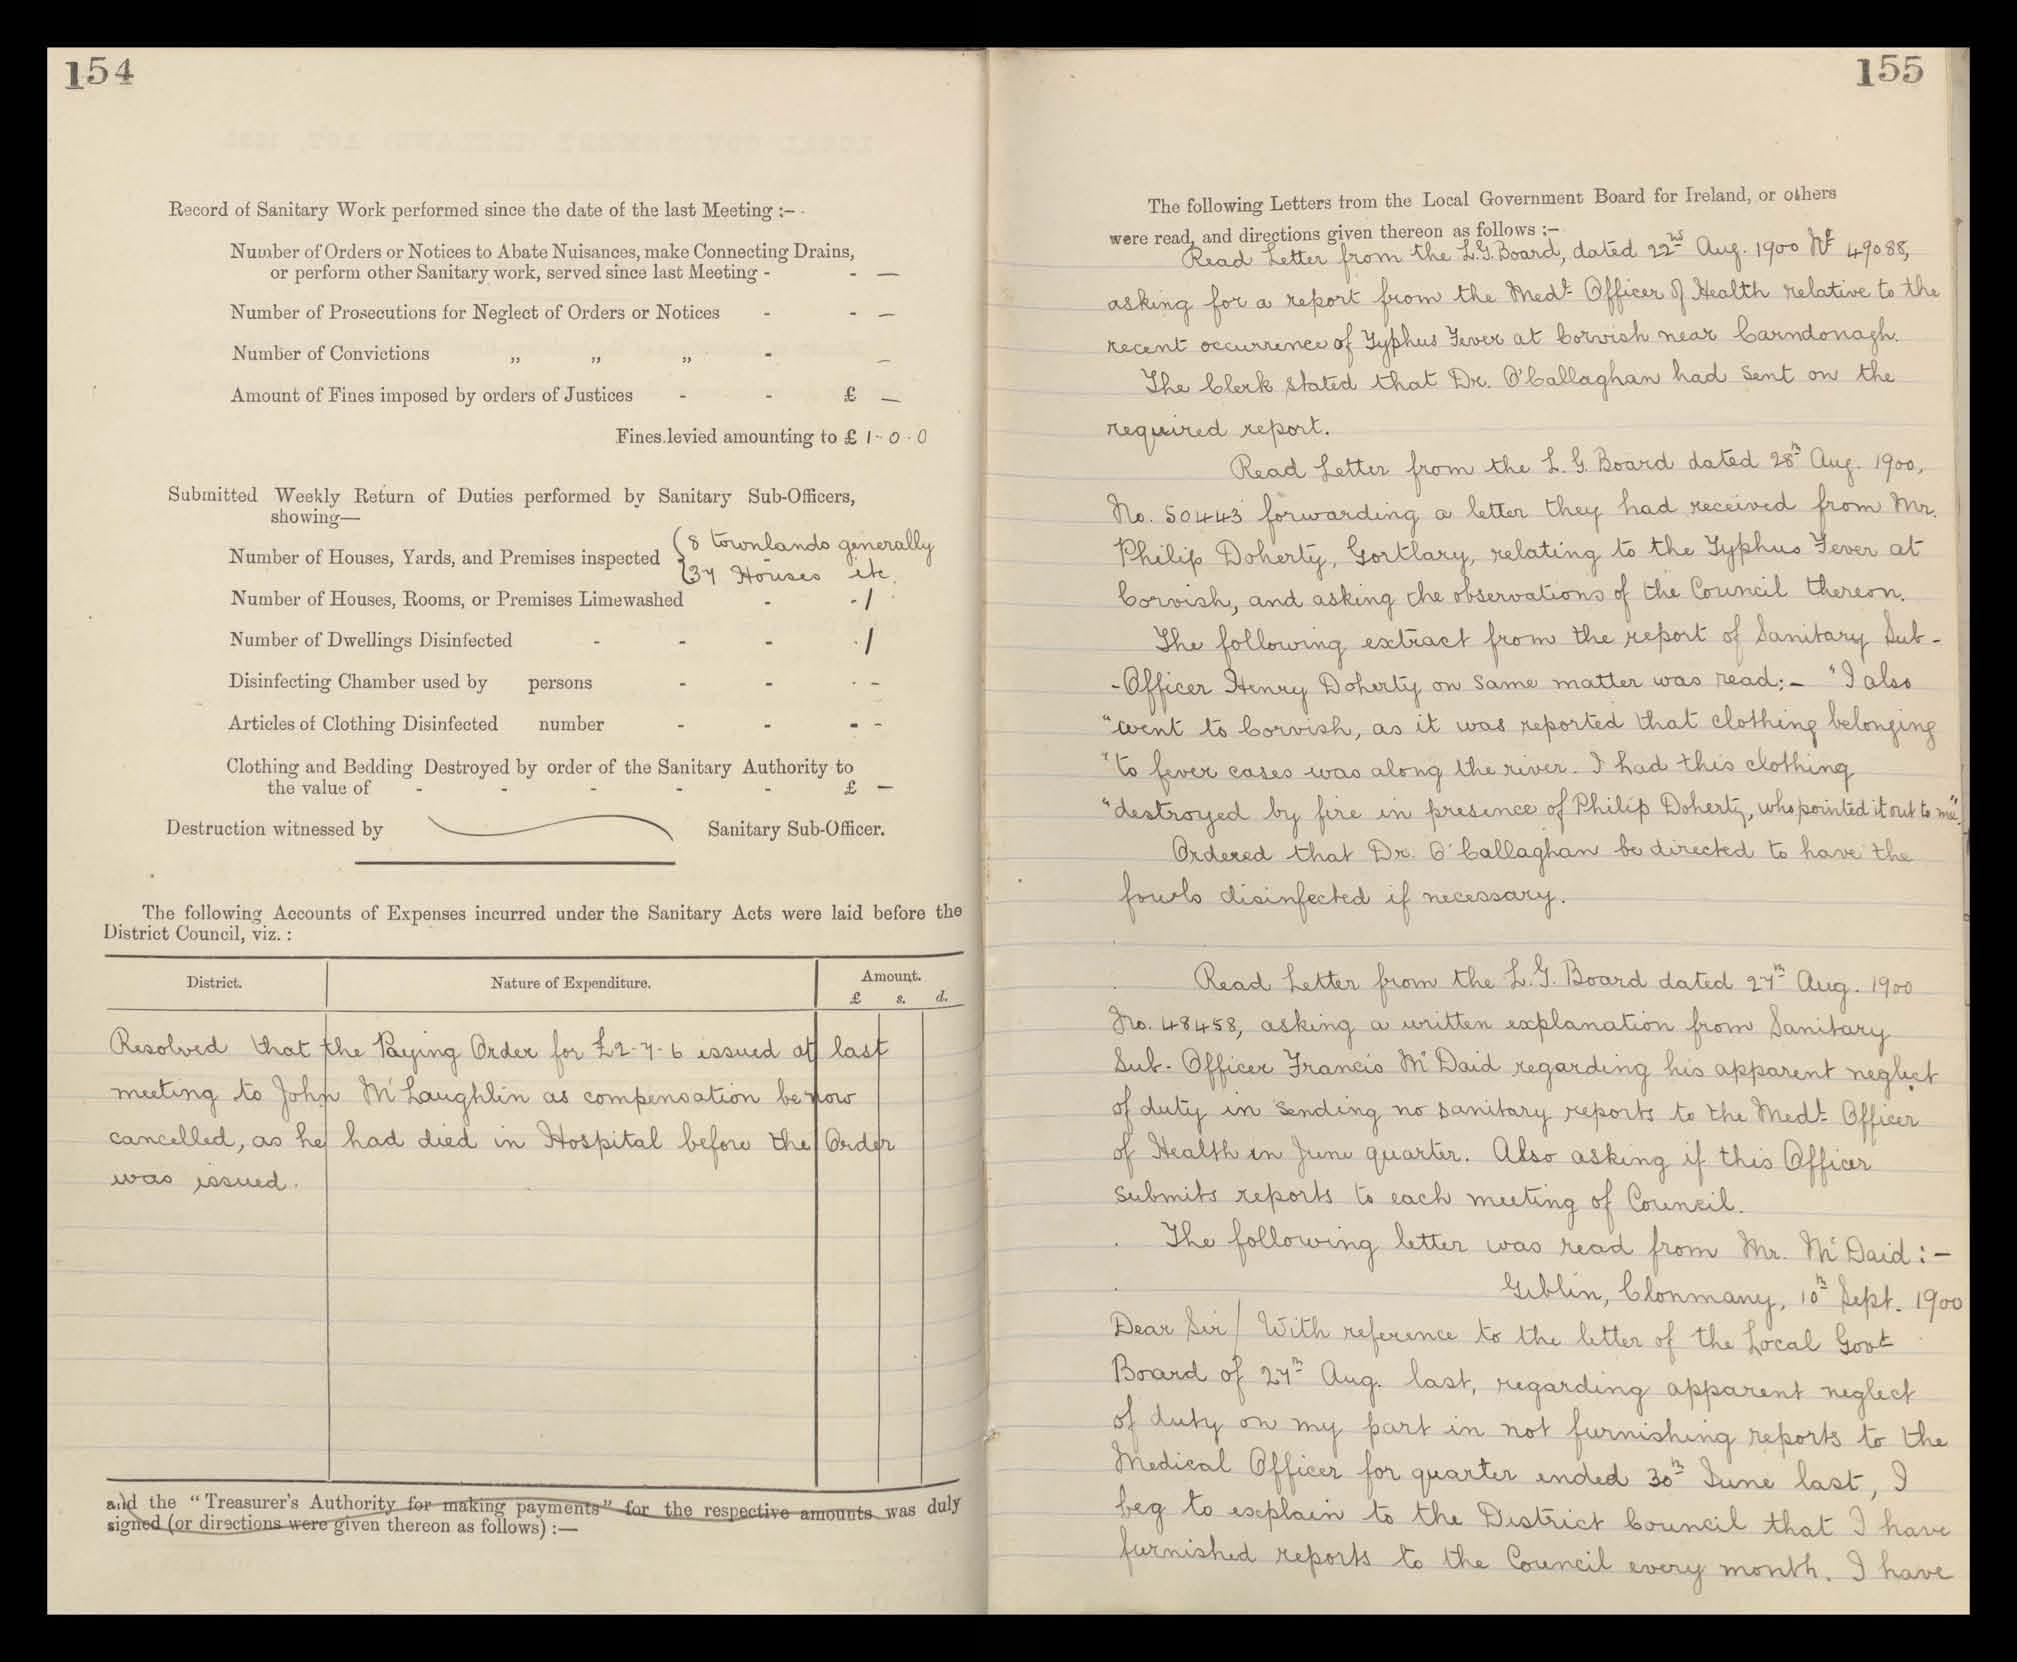 154
Record of Sanitary Work performed since the date of the last Meeting :—
Number of Orders or Notices to Abate Nuisances, make Connecting Drains,
or perform other Sanitary work, served since last Meeting - - —
Number of Prosecutions for Neglect of Orders or Notices - - —
Number of Convictions „ „ „ - —
Amount of Fines imposed by orders of Justices - - £ —
Fines levied amounting to £ 1-0-0
Submitted Weekly Return of Duties performed by Sanitary Sub-Officers,
showing—
Number of Houses, Yards, and Premises inspected { 8 townlands generally
37 Houses etc.
Number of Houses, Rooms, or Premises Limewashed - - 1
Number of Dwellings Disinfected - - - 1
Disinfecting Chamber used by persons - - - -
Articles of Clothing Disinfected number - - - -
Clothing and Bedding Destroyed by order of the Sanitary Authority to
the value of - - - - - £ —
Destruction witnessed by Sanitary Sub-Officer.
The following Accounts of Expenses incurred under the Sanitary Acts were laid before the
District Council, viz. :
District. Nature of Expenditure. Amount.
£ s. d.
Resolved that the Paying Order for £2-7-6 issued at last
meeting to John McLaughlin as compensation be now
cancelled, as he had died in Hospital before the Order
was issued.
and the "Treasurer's Authority for making payments" for the respective amounts was duly
signed (or directions were given thereon as follows) :—
155
The following Letters from the Local Government Board for Ireland, or others
were read, and directions given thereon as follows :—
Read Letter from the L.G. Board, dated 22nd Aug. 1900 No 49088,
asking for a report from the Medl. Officer of Health relative to the
recent occurrence of Typhus Fever at Corvish near Carndonagh.
The Clerk stated that Dr. O'Callaghan had sent on the
required report.
Read Letter from the L. G. Board dated 28th Aug. 1900,
No. 50443 forwarding a letter they had received from Mr.
Philip Doherty, Gortlary, relating to the Typhus Fever at
Corvish, and asking the observations of the Council thereon.
The following extract from the report of Sanitary Sub-
-Officer Henry Doherty on same matter was read:— "I also
"went to Corvish, as it was reported that clothing belonging
"to fever cases was along the river. I had this clothing
"destroyed by fire in presence of Philip Doherty, who pointed it out to me".
Ordered that Dr. O'Callaghan be directed to have the
fowls disinfected if necessary.
Read Letter from the L.G. Board dated 27th Aug. 1900
No. 48458, asking a written explanation from Sanitary
Sub-Officer Francis McDaid regarding his apparent neglect
of duty in sending no sanitary reports to the Medl. Officer
of Health in June quarter. Also asking if this Officer
submits reports to each meeting of Council.
The following letter was read from Mr. McDaid :—
Giblin, Clonmany, 10th Sept. 1900
Dear Sir/ With reference to the letter of the Local Govt
Board of 27th Aug. last, regarding apparent neglect
of duty on my part in not furnishing reports to the
Medical Officer for quarter ended 30th June last, I
beg to explain to the District Council that I have
furnished reports to the Council every month. I have